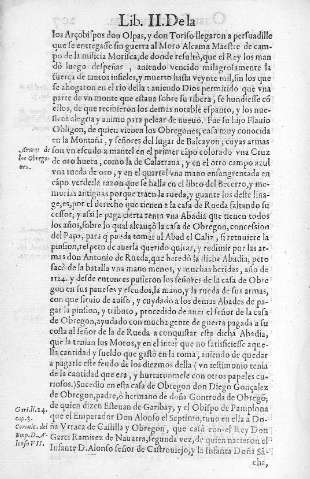 Lib. II. De la
los Arçobispos don Olpas, y don Toriso llegaron a persuadille
que se entregasse sin guerra al Moro Alcama Maestre de cam-
po de la milicia Morisca, de donde resultò, que el Rey los man
dò luego despeñar, auiendo vencido milagrosamente la
fuerça de tantos infieles, y muerto hasta veynte mil, sin los que
se ahogaron en el rio de la teniendo Dios permitido que vna
parte de vn monte que estaua sobre su ribera, se hundiesse cõ
ellos, de que recibieron los demas notable espanto, y los nues-
tros alegria y animo para pelear de nueuo. Fue su hijo Flauio
Obligon, de quien vienen los Obregones, casa muy conocida
en la Montaña, y señores del lugar de Balcayon, cuyas armas
Armas de los Obregones.
son vn escudo a mantel en el primer cãpo colorado vna Cruz
de oro hueta, como la de Calatraua, y en el otro campo azul
vna rueda de oro, y en el quarto vna mano ensangrentada en
cãpo verde la razon que se halla en el libro del Becerro, y me-
morias antiguas porque traen la rueda, y guante los deste lina-
ge, es, por el derecho que tienen a la casa de Rueda faltando su
cessor, y assi le paga cierta renta vna Abadia que tienen todos
los años, sobre lo qual alcançò la casa de Obregon, concession
del Papa, para q pueda tomar al Abad el Caliz, si retuuiere la
pension, respeto de auerla querido quitar, y redimir por las ar-
mas don Antonio de Rueda, que heredò la dicha Abadia, pero
sacò de la batalla vna mano menos, y muchas heridas, año de
1124. y desde entonces pusieron los señores de la casa de Obre
gon en sus paueses y escudos, la mano, y la rueda de sus armas,
con que siruio de auiso, y cuydado a los demas Abades de pa-
gar la pension, y tributo, procedido de auer el señor de la casa
de Obregon, ayudado con mucha gente de guerra pagada a su
costa al señor de la de Rueda a conquistar esta dicha Abadia,
que la traian los Moros, y en el inter que no satisficiesse aque-
lla cantidad y sueldo que gastò en la toma, auiendo de quedar
a pagarle este feudo de los diezmos della (vn testimonio tenia
de la cantidad que era, y hurtaronmele con otros papeles cu-
riosos.) Sucedio en esta casa de Obregon don Diego Gonçalez
de Obregon, padre, ò hermano de doña Gontroda de Obregõ,
Gari. li. 24. cap. 5.
de quien dizen Esteuan de Garibay, y el Obispo de Pamplona
que el Emperador Don Alonso el Septimo, tuuo en ella a Do-
ña Vrraca de Castilla y Obregon, que casò con el Rey Don
Garci Ramirez de Nauarra, segunda vez, de quien nacieron el
Infante D. Alonso señor de Castroviejo, y la Infanta Doña Sã-
cha,